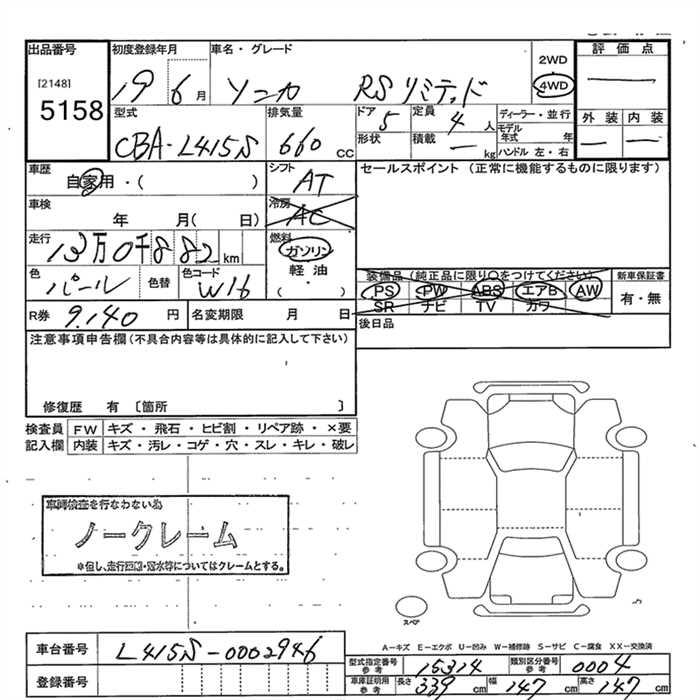 出品番号 初度登録年月 車名・グレード 2WD 評価点
[2148] 5158 19 6月 ソニカ RSリミテッド 4WD
型式 排気量 ドア 定員 ディーラー・並行 外装 内装
CBA-L415S 660 CC 5 4人 モデル年式 年
形状 積載 kg ハンドル 左・右
車歴 シフト セールスポイント (正常に機能するものに限ります)
自家用・( ) AT
車検 冷房
年 月( 日) AC
走行 燃料
13万0千882km ガソリン
色 パール 色替 色コード W16 軽油
( ・ )
装備品(純正品に限り○をつけてください) 新車保証書
PS PW ABS エアB AW 有・無
SR ナビ TV カワ
R券 9.140 円 名変期限 月 日 後日品
注意事項申告欄(不具合内容等は具体的に記入して下さい)
修復歴 有〔箇所 〕
検査員 FW キズ・飛石・ヒビ割・リペア跡・×要
記入欄 内装 キズ・汚レ・コゲ・穴・スレ・キレ・破レ
車両検査を行なわない為
ノークレーム
※但し、走行距離・冠水等についてはクレームとする。
スペア
A-キズ E-エクボ U-凹み W-補修跡 S-サビ C-腐食 XX-交換済
車台番号 L415S-0002946
型式指定番号 参考 15314 類別区分番号 参考 0004
登録番号
車庫証明用 参考 長さ 339cm 幅 147cm 高さ 147cm